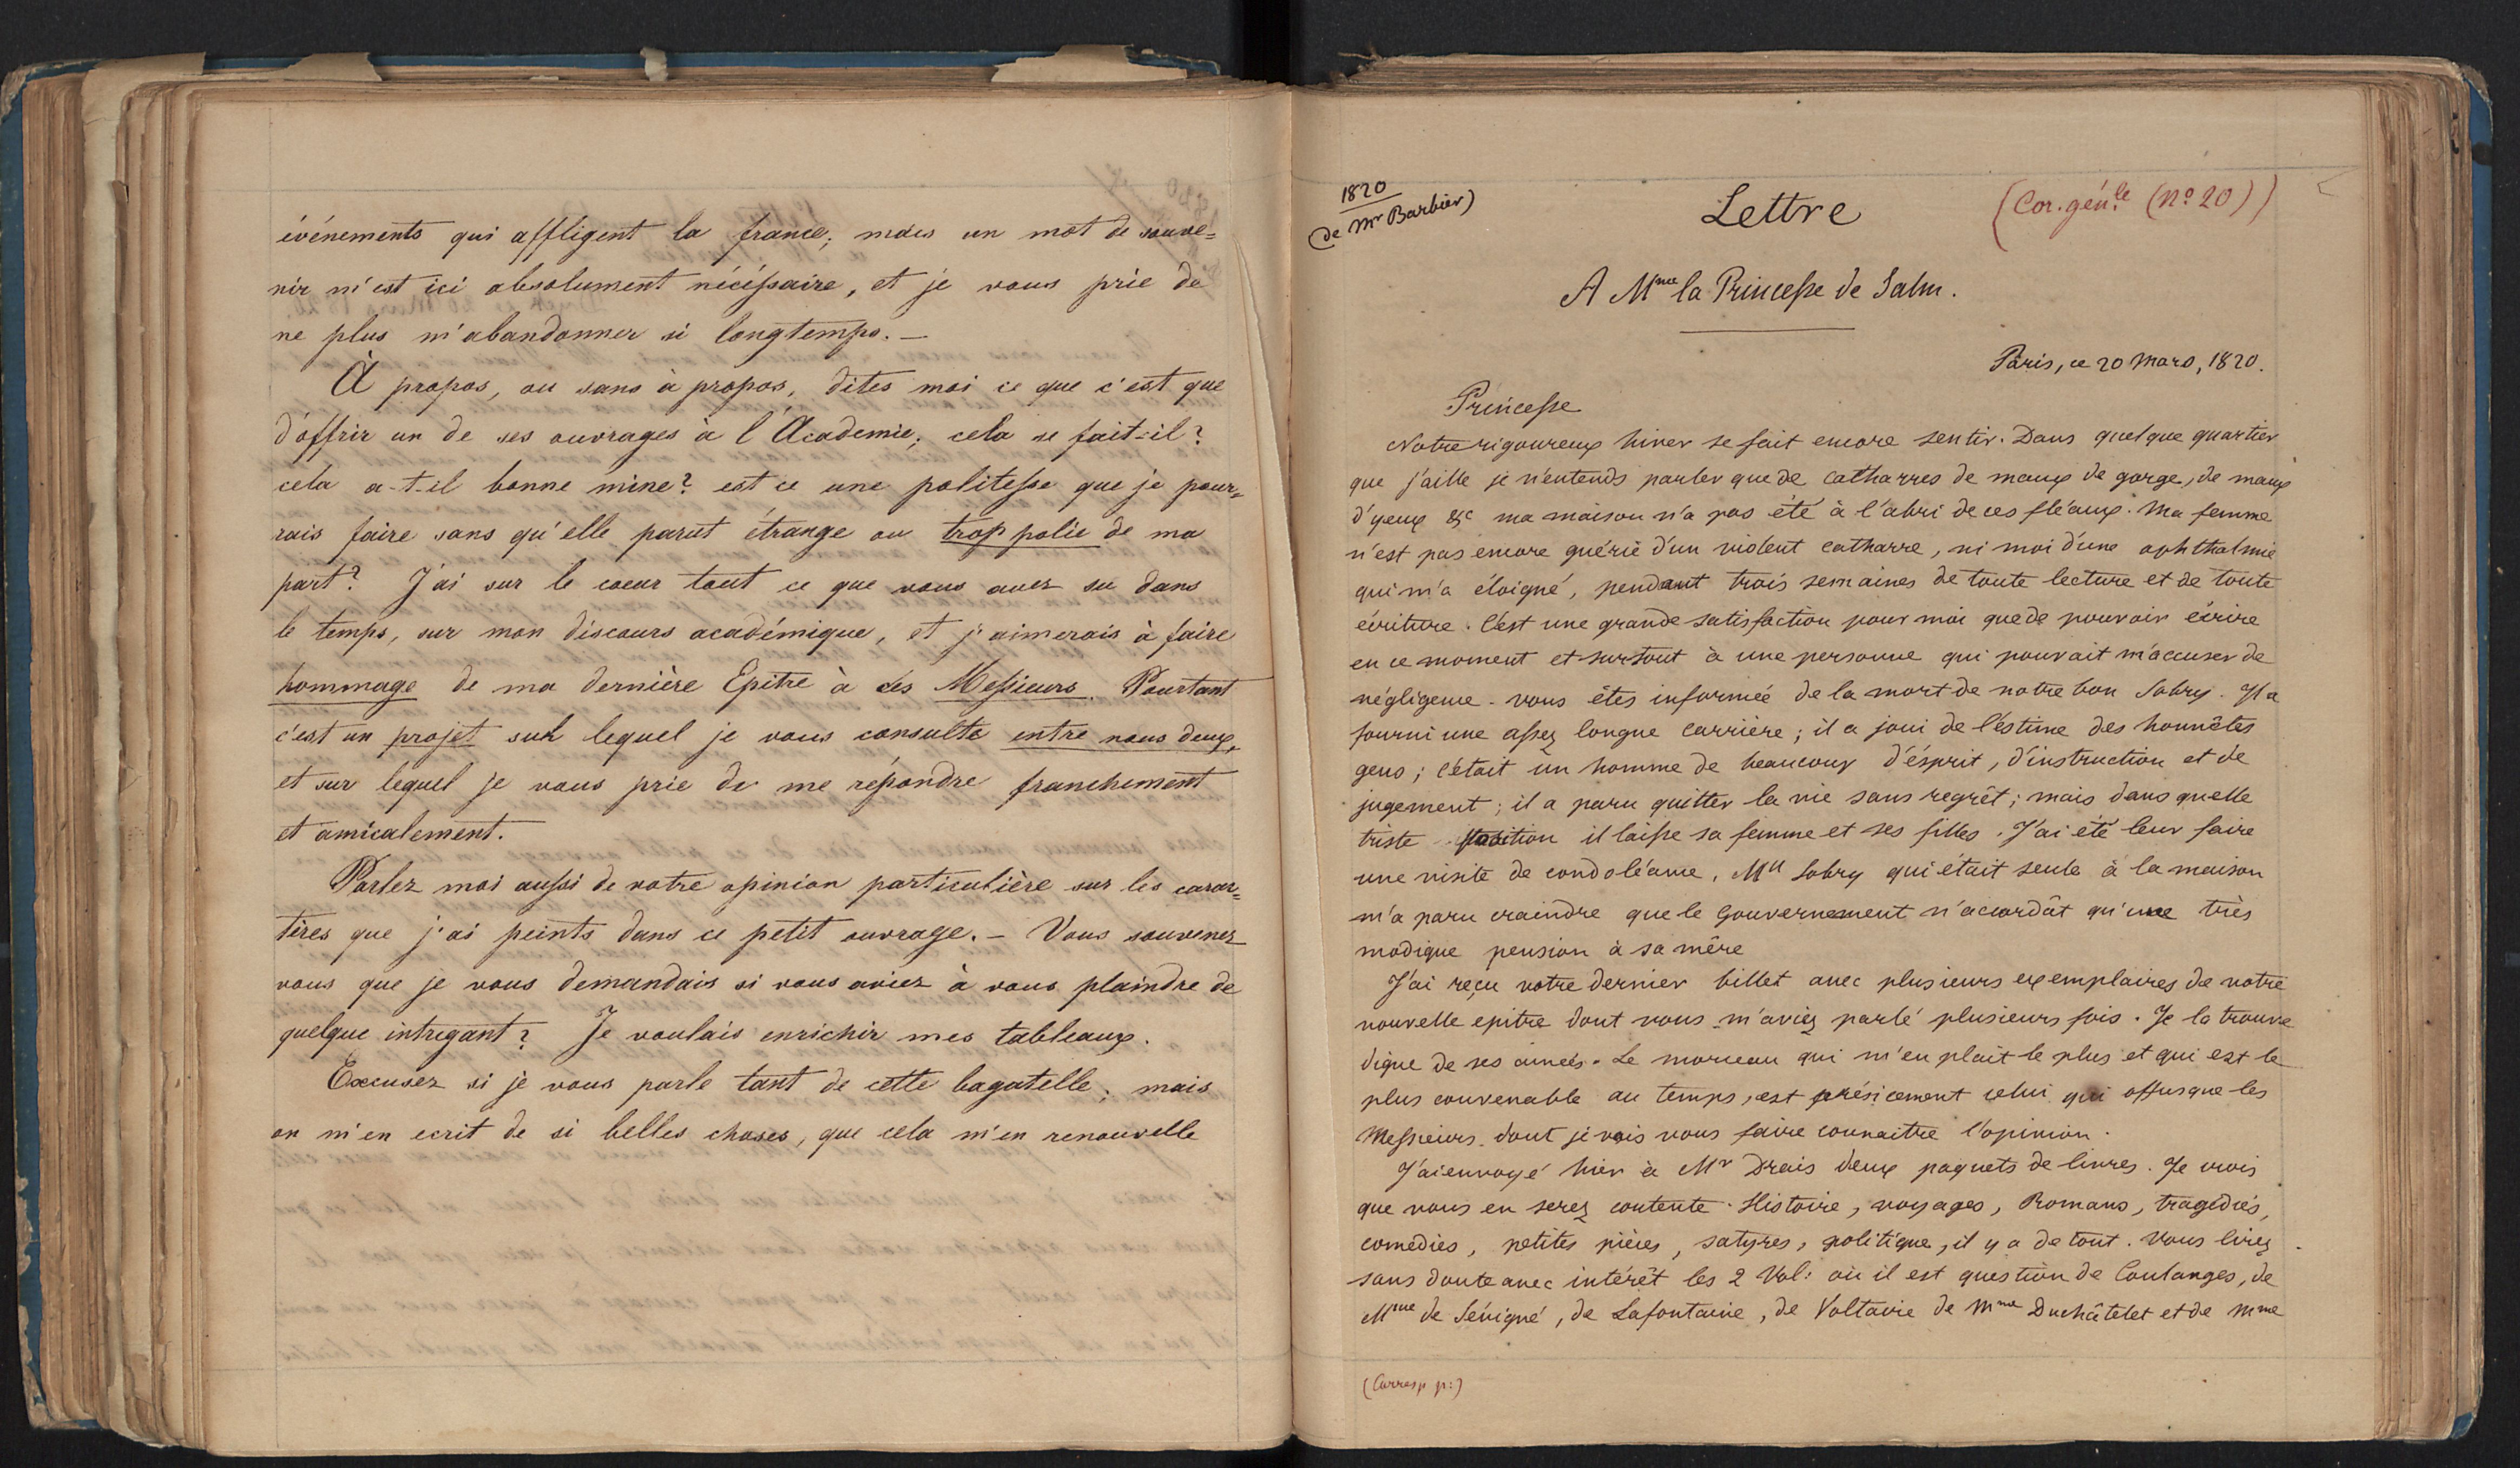 événements qui affligent la france; mais un mot de souve=
nir m'est ici absolument nécéssaire, et je vous prie de
ne plus m'abandonner si longtemps. —
À propos, ou sans à propos, dites moi ce que c'est que
d'offrir un de ses ouvrages à l'Academie; cela se fait-il?
cela a-t-il bonne mine? est ce une politesse que je pour=
rais faire sans qu'elle parut étrange ou trop polie de ma
part? J'ai sur le coeur tout ce que vous avez su dans
le temps, sur mon discours académique, et j'aimerais à faire
hommage de ma dernière Epitre à ces Messieurs. Pourtant
c'est un projet sur lequel je vous consulte entre nous deux,
et sur lequel je vous prie de me répondre franchement
et amicalement.
Parlez moi aussi de votre opinion particulière sur les carac=
tères que j'ai peints dans ce petit ouvrage. — Vous souvenez
vous que je vous demandais si vous aviez à vous plaindre de
quelque intrigant? Je voulais enrichir mes tableaux.
Excusez si je vous parle tant de cette bagatelle; mais
on m'en ecrit de si belles choses, que cela m'en renouvelle
1820
(de Mr Barbier)
Lettre
(Cor. génle (No 20))
A Mme la Princesse de Salm.
Paris, ce 20 Mars, 1820.
Princesse
Notre rigoureux hiver se fait encore sentir. Dans quelque quartier
que j'aille je n'entends parler que de catharres de maux de gorge, de maux
d'yeux &c ma maison n'a pas été à l'abri de ces fléaux. Ma femme
n'est pas encore guérie d'un violent catharre, ni moi d'une ophthalmie
qui m'a éloigné, pendant trois semaines de toute lecture et de toute
écriture. C'est une grande satisfaction pour moi que de pouvoir écrire
en ce moment et surtout à une personne qui pouvait m'accuser de
négligence. vous êtes informée de la mort de notre bon Sobry. Il a
fourni une assez longue carrière; il a joui de l'estime des honnêtes
gens; c'était un homme de beaucoup d'ésprit, d'instruction et de
jugement; il a paru quitter la vie sans regrêt; mais dans quelle
triste position il laisse sa femme et ses filles. J'ai été leur faire
une visite de condoléance. Mlle Sobry qui était seule à la maison
m'a paru craindre que le Gouvernement n'accordât qu'une très
modique pension à sa mère
J'ai reçu votre dernier billet avec plusieurs exemplaires de votre
nouvelle epitre dont vous m'aviez parlé plusieurs fois. Je la trouve
digne de ses ainées. Le morceau qui m'en plait le plus et qui est le
plus convenable au temps, est présicement celui qui offusque les
Messieurs dont je vais vous faire connaitre l'opinion.
J'ai envoyé hier à Mr Drais deux paquets de livres. Je crois
que vous en serez contente. Histoire, voyages, Romans, tragédies,
comédies, petites pièces, satyres, politique, il y a de tout. Vous lirez
sans doute avec intérêt les 2 Vol: où il est question de Coulanges, de
Mme de Sévigné, de Lafontaine, de Voltaire de Mme Duchâtelet et de Mme
(Corresp p:)